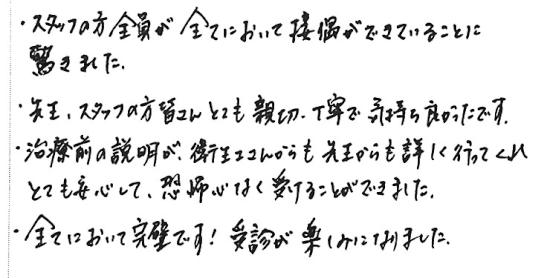 ・スタッフの方全員が全てにおいて接偶ができていることに
驚きました。
・先生、スタッフの方皆さんとても親切、丁寧で気持ち良かったです。
・治療前の説明が、衛生士さんからも先生からも詳しく行ってくれ
とても安心して、恐怖心なく受けることができました。
・全てにおいて完璧です！受診が楽しみになりました。